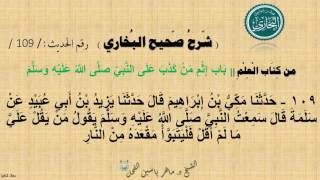 ( شَرحُ صَحيح البُخاري ) رقم الحديث: / 109 /
البخاري
من كتاب العلم || بَاب إثْمِ مَنْ كَذَبَ عَلَى النَّبِيِّ صَلَّى اللَّهُ عَلَيْهِ وَسَلَّمَ
١٠٩ - حَدَّثَنَا مَكِّيُّ بْنُ إِبْرَاهِيمَ قَالَ حَدَّثَنَا يَزِيدُ بْنُ أَبِي عُبَيْدٍ عَنْ
سَلَمَةَ قَالَ سَمِعْتُ النَّبِيَّ صَلَّى اللَّهُ عَلَيْهِ وَسَلَّمَ يَقُولُ مَنْ يَقُلْ عَلَيَّ
مَا لَمْ أَقُلْ فَلْيَتَبَوَّأْ مَقْعَدَهُ مِنَ النَّارِ
الشيخ د. ماهر ياسين الفحل